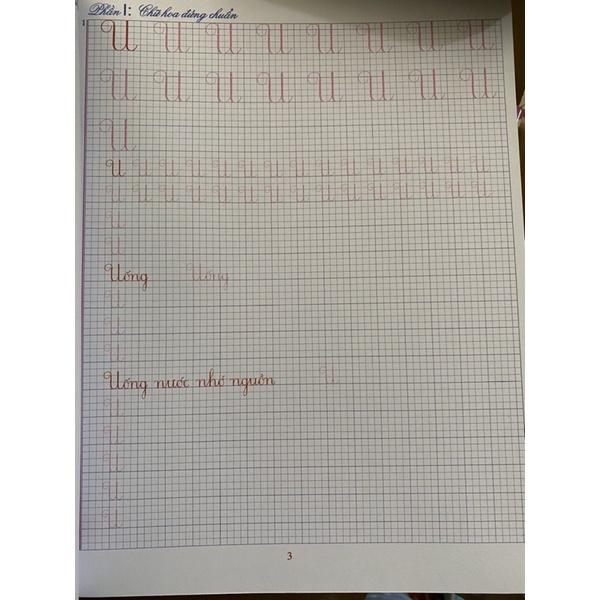 Phần 1: Chữ hoa đứng chuẩn
1
U U U U U U U U
U U U U U U U U
U
U U U U U U U U U U U U U U U
U U U U U U U U U U U U U U U
U
U
Uống Uống
U
U
U
Uống nước nhớ nguồn U
U
U
U
U
U
3